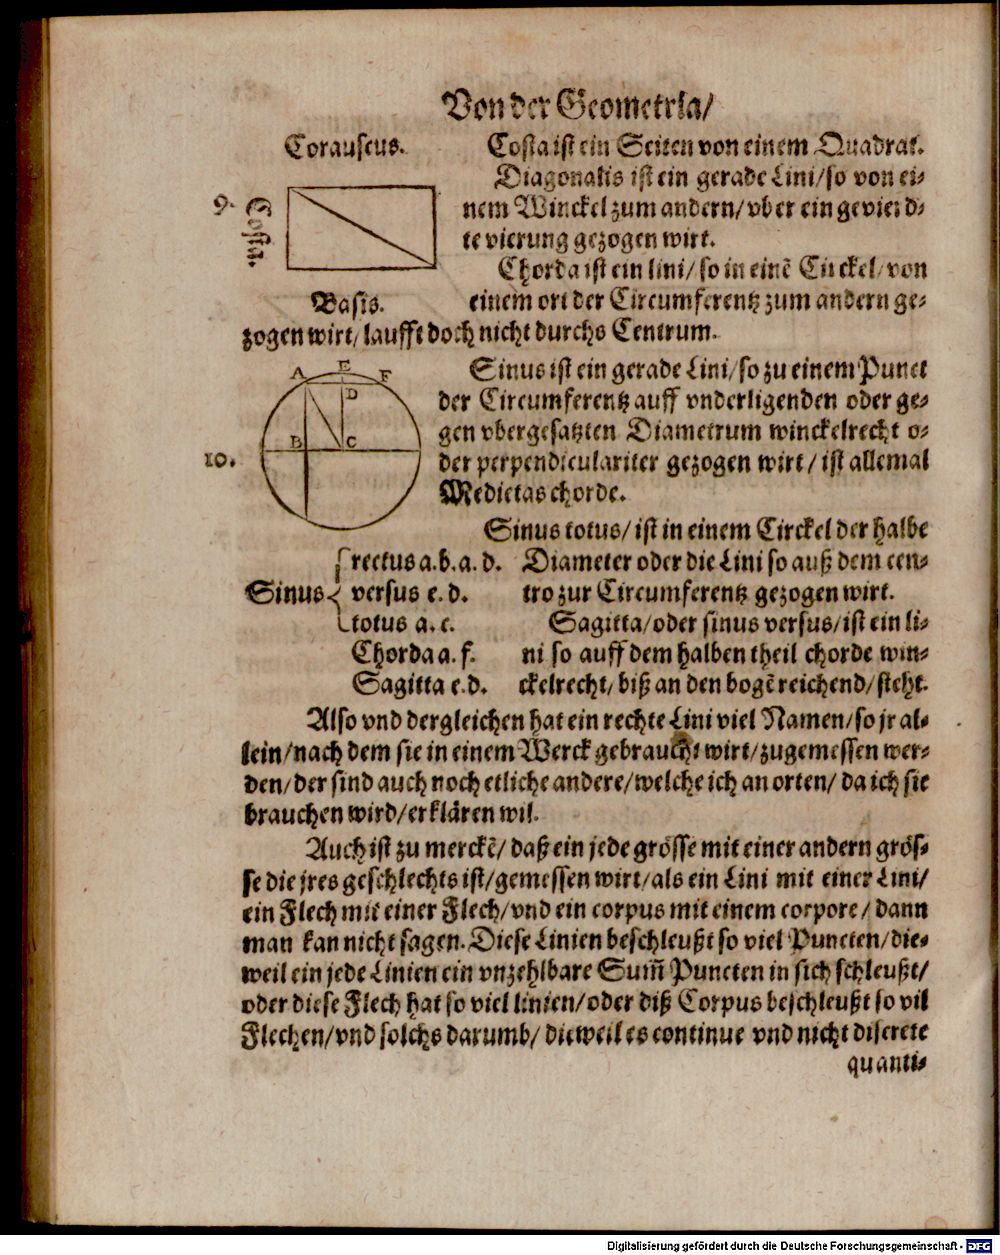 Von der Geometria/
Corauscus.
Costa ist ein Seiten von einem Quadrat.
Diagonalis ist ein gerade Lini/so von ei⸗
9.
Costa.
nem Winckel zum andern/vber ein gevierd⸗
te vierung gezogen wirt.
Chorda ist ein lini/so in einē Circkel/von
Basis.
einem ort der Circumferentz zum andern ge⸗
zogen wirt/laufft doch nicht durchs Centrum.
A E F
D
B C
10.
Sinus ist ein gerade Lini/so zu einem Punct
der Circumferentz auff vnderligenden oder ge⸗
gen vbergesatzten Diametrum winckelrecht o⸗
der perpendiculariter gezogen wirt/ist allemal
Medietas chorde.
Sinus totus/ist in einem Circkel der halbe
Diameter oder die Lini so auß dem cen⸗
tro zur Circumferentz gezogen wirt.
Sinus { rectus a.b.a.d.
versus e.d.
totus a.c.
Chorda a.f.
Sagitta e.d.
Sagitta/oder sinus versus/ist ein li⸗
ni so auff dem halben theil chorde win⸗
ckelrecht/biß an den bogē reichend/steht.
Also vnd dergleichen hat ein rechte Lini viel Namen/so jr al⸗
lein/nach dem sie in einem Werck gebraucht wirt/zugemessen wer⸗
den/der sind auch noch etliche andere/welche ich an orten/da ich sie
brauchen wird/erklären wil.
Auch ist zu merckē/daß ein jede grösse mit einer andern grös⸗
se die jres geschlechts ist/gemessen wirt/als ein Lini mit einer Lini/
ein Flech mit einer Flech/vnd ein corpus mit einem corpore/dann
man kan nicht sagen. Diese Linien beschleußt so viel Puncten/die⸗
weil ein jede Linien ein vnzehlbare Sum̄ Puncten in sich schleußt/
oder diese Flech hat so viel linien/oder diß Corpus beschleußt so vil
Flechen/vnd solchs darumb/dieweil es continue vnd nicht discrete
quanti⸗
Digitalisierung gefördert durch die Deutsche Forschungsgemeinschaft - DFG